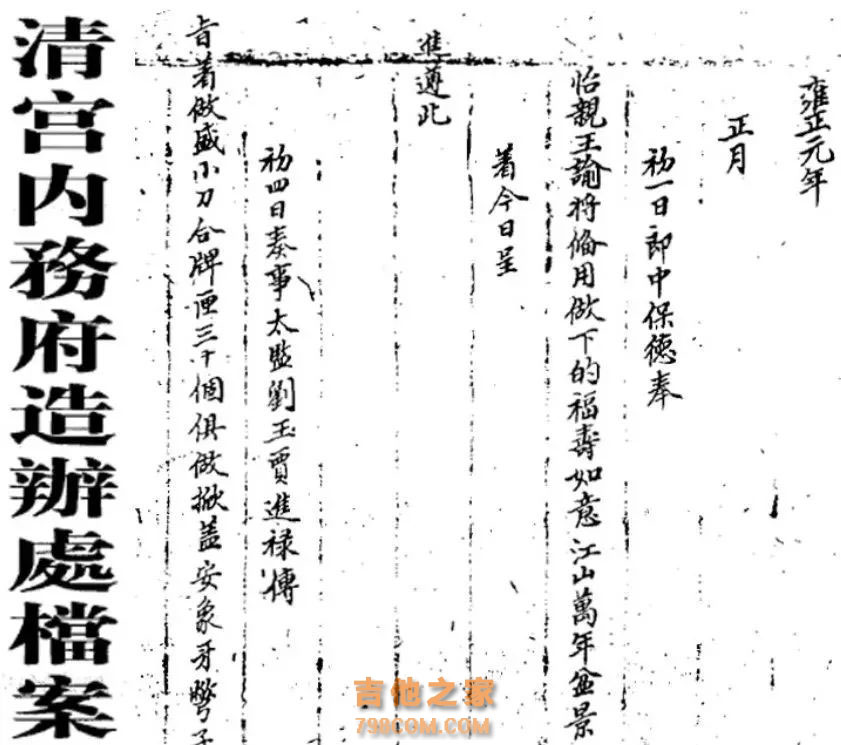 清宫内務府造辦處檔案
雍正元年
正月
初一日郎中保德奉
怡親王諭将俻用做下的福壽如意江山萬年盆景
着今日呈
進遵此
初四日奏事太監劉玉賈進禄傳
旨着做盛小刀合牌匣三十個俱做掀盖安象牙
吉他之家
798COM.COM